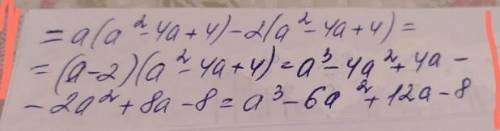 = a(a² - 4a + 4) - 2(a² - 4a + 4) =
= (a - 2)(a² - 4a + 4) = a³ - 4a² + 4a -
- 2a² + 8a - 8 = a³ - 6a² + 12a - 8